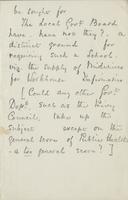 be sought for
The Local Govt Board
have - have not they? - a
distinct ground for
requiring such a School.
viz. the supply of Midwives
for Workhouse Infirmaries
[Could any other Govt
Dept. such as the Privy
Council, take up the
subject except on the
general score of Public Health
- a too general score?]